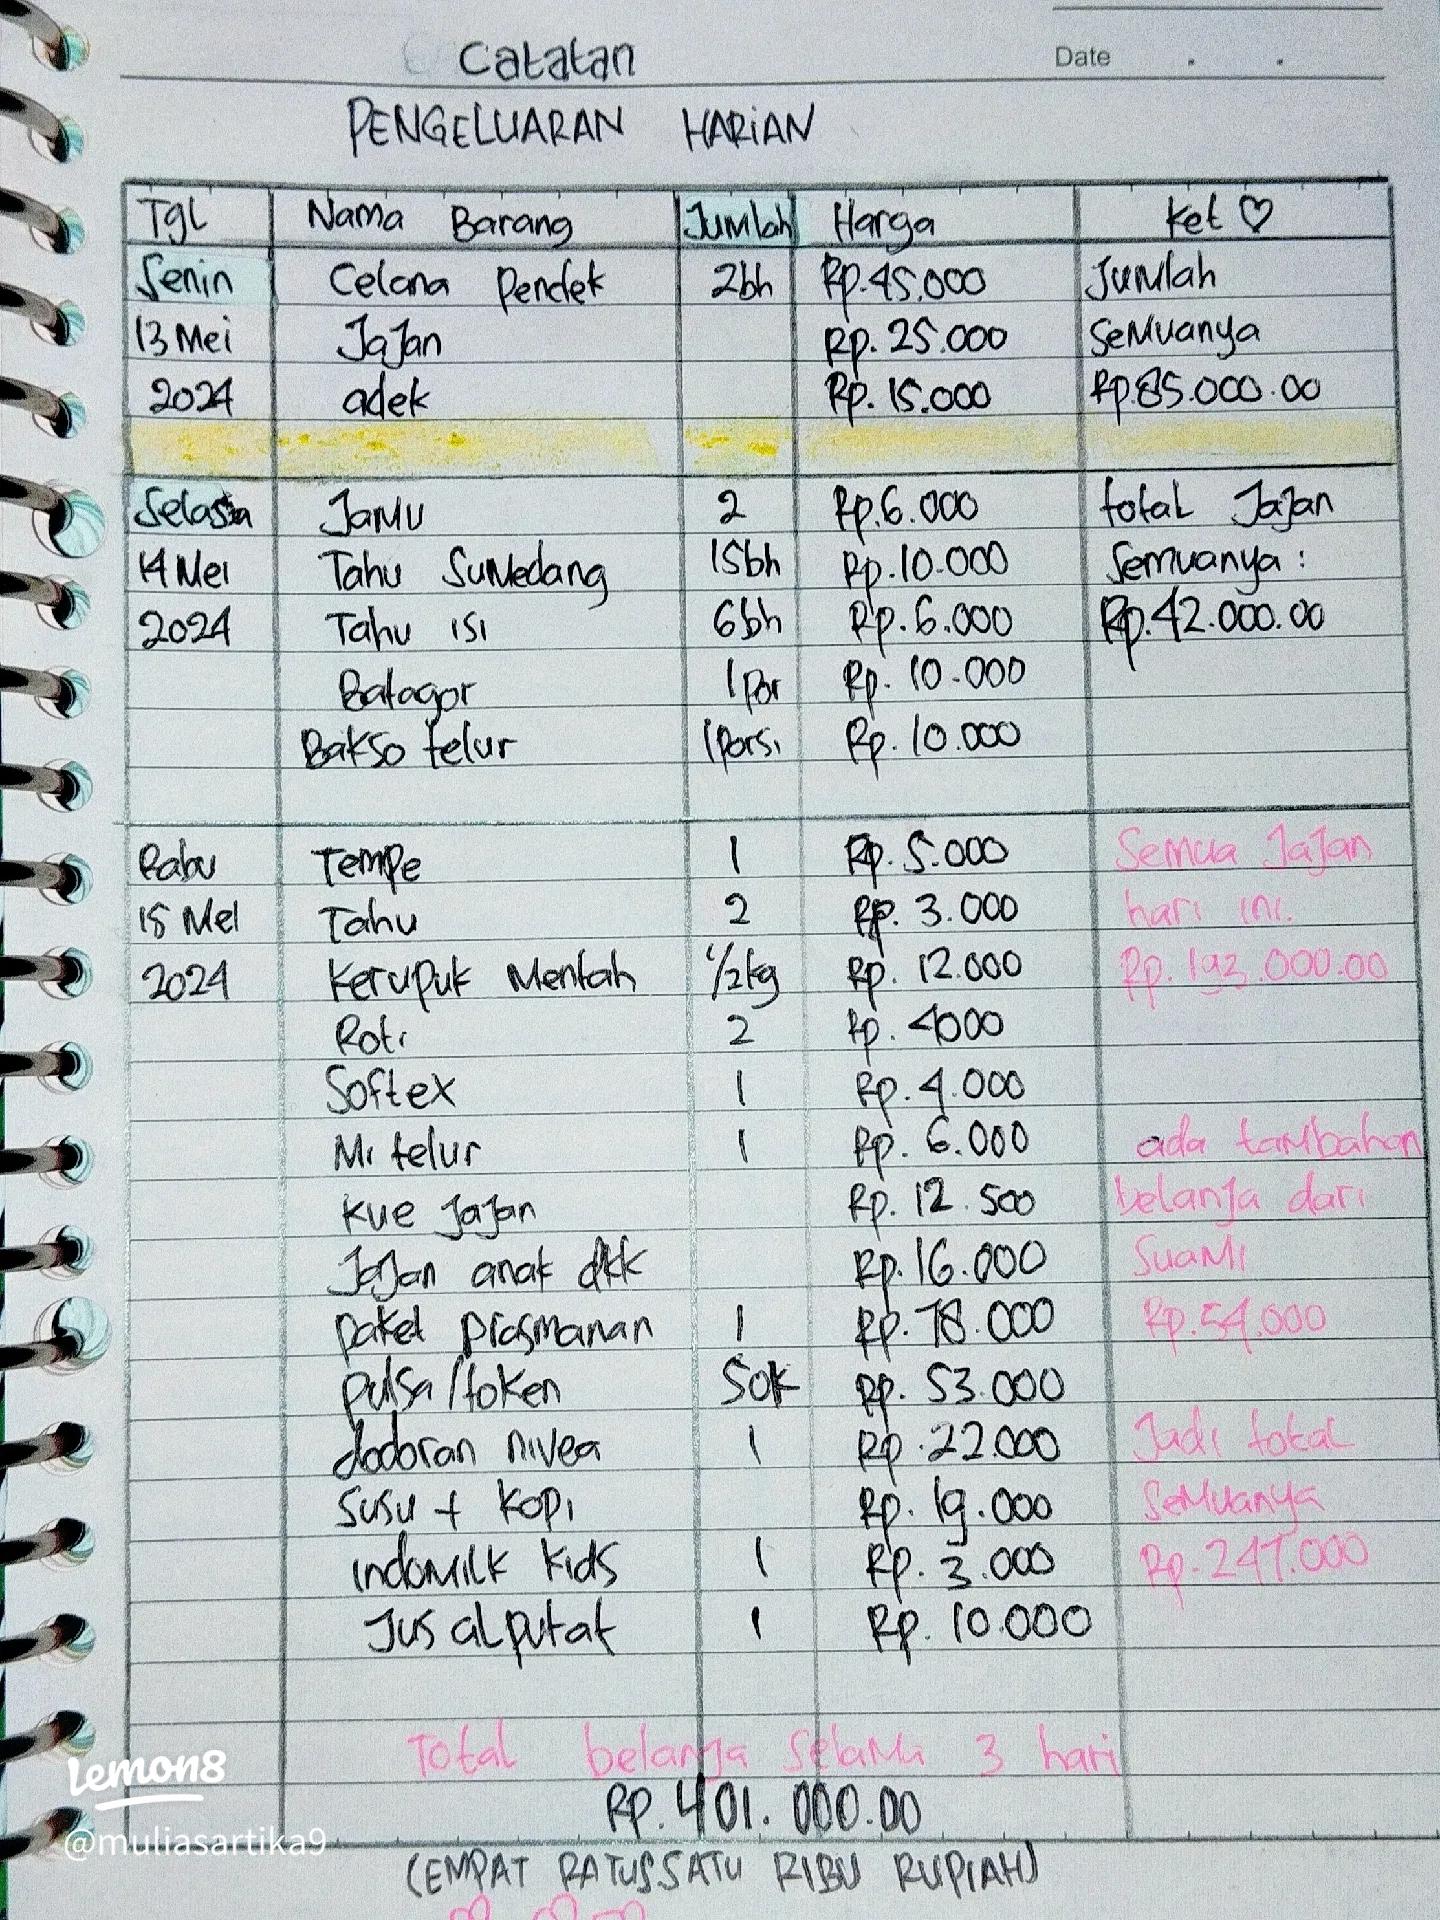 Catatan
Date
PENGELUARAN HARIAN
Tgl Nama Barang Jumlah Harga Ket ♡
Senin Celana Pendek 2bh Rp.45.000 Jumlah
13 Mei JaJan Rp. 25.000 Semuanya
2024 adek Rp. 15.000 Rp85.000.00
Selasa Jamu 2 Rp.6.000 total JaJan
14 Mei Tahu Sumedang 15bh Rp.10.000 Semuanya :
2024 Tahu isi 6bh Rp.6.000 Rp.42.000.00
Batagor 1 Por Rp. 10.000
Bakso telur 1 Porsi Rp. 10.000
Rabu Tempe 1 Rp. 5.000 Semua JaJan
15 Mei Tahu 2 Rp. 3.000 hari ini.
2024 Kerupuk Mentah 1/2kg Rp. 12.000 Rp. 193.000.00
Roti 2 Rp. 4000
Softex 1 Rp. 4.000
Mi telur 1 Rp. 6.000 ada tambahan
Kue JaJan Rp. 12.500 belanja dari
JaJan anak dkk Rp. 16.000 Suami
paket prasmanan 1 Rp. 78.000 Rp.54.000
pulsa/token 50k Rp. 53.000
dodoran nivea 1 Rp. 22.000 Jadi total
Susu + Kopi Rp. 19.000 Semuanya
indomilk Kids 1 Rp. 3.000 Rp. 247.000
Jus alpukat 1 Rp. 10.000
Total belanja Selama 3 hari
RP. 401.000.00
(EMPAT RATUS SATU RIBU RUPIAH)
Lemon8
@muliasartika9